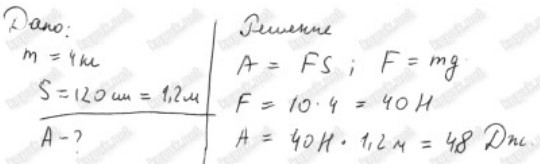 Дано:
m = 4 кг
S = 120 см = 1,2 м
A - ?
Решение
A = FS ; F = mg
F = 10 · 4 = 40 Н
A = 40 Н · 1,2 м = 48 Дж.